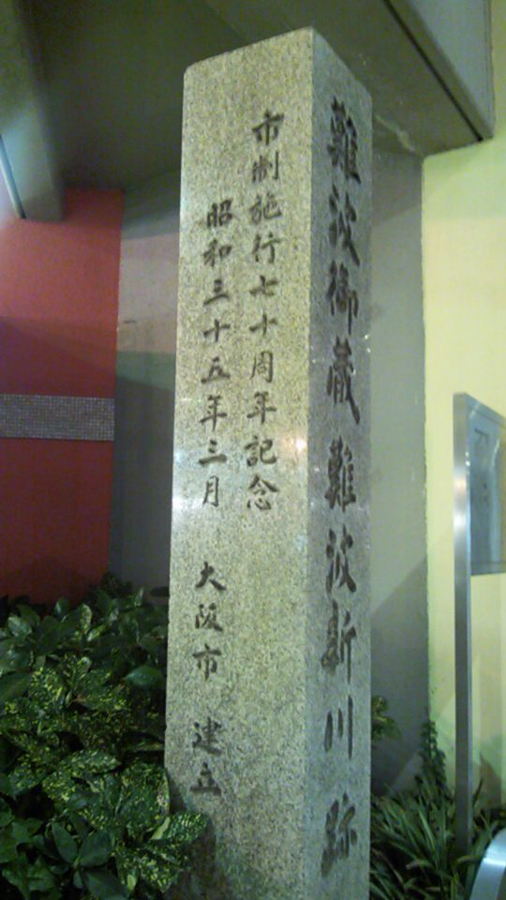 難波御蔵難波新川跡
市制施行七十周年記念
昭和三十五年三月 大阪市 建立